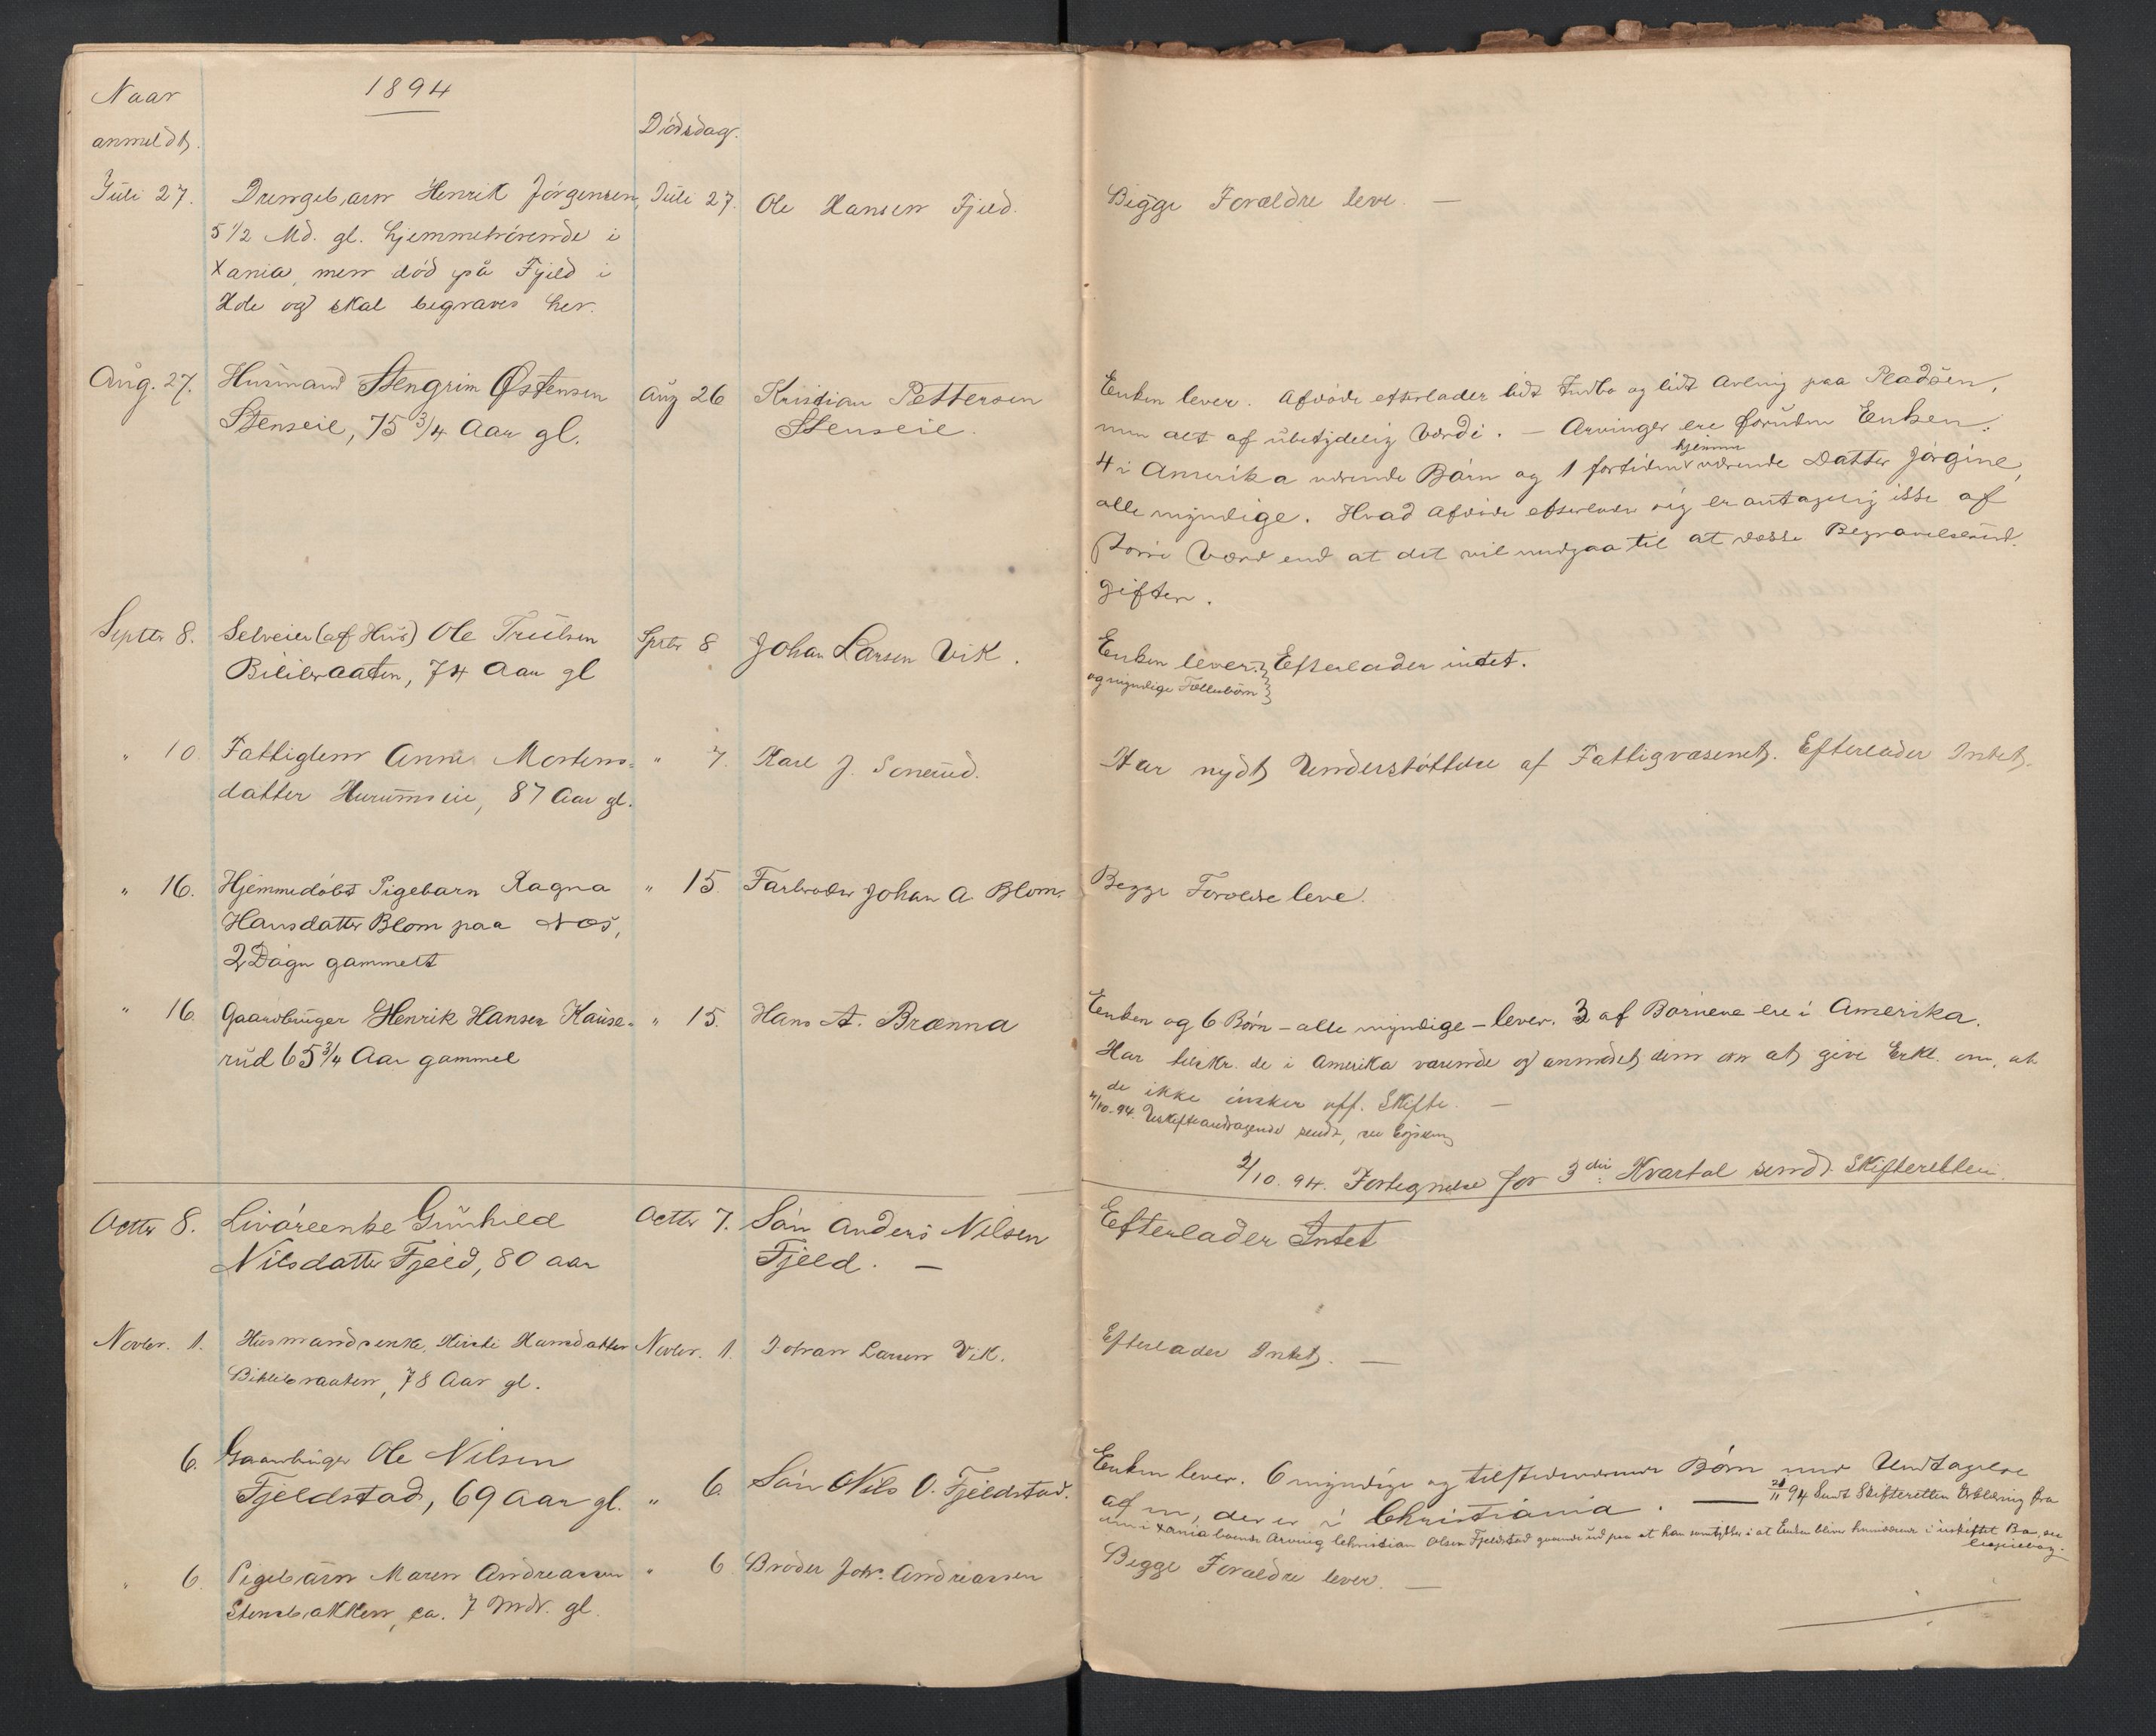 Naar
anmeldt.
1894
Dödsdag.
Juli 27. Drengebarn Henrik Jörgensen, Juli 27. Ole Hansen Fjeld. Begge Forældre leve. —
5 1/2 Md. gl. hjemmehörende i
Xania, men död på Fjeld i
Hole og skal begraves her.
Aug. 27. Husmand Stengrim Østensen Aug 26 Kristian Pettersen
Stenseie, 75 3/4 Aar gl. Stenseie.
Enken lever. Afdöde efterlader lidt Indbo og lidt Avling paa Pladsen,
men alt af ubetydelig Værdi. — Arvinger ere foruden Enken:
4 i Amerika værende Börn og 1 fortiden hjemme værende Datter Jörgine,
alle myndige. Hvad Afdöde efterlader sig er antagelig ikke af
större Værd end at det vil medgaa til at dække Begravelsesud-
gifter.
Septbr 8. Selveier (af Hus) Ole Trulsen Sptbr 8 Johan Larsen Vik. Enken lever } Efterlader intet.
Bilibraaten, 74 Aar gl og myndige Fællesbörn }
" 10. Fattiglem Anne Mortens- " 7. Karl J. Sonerud. Har nydt Understöttelse af Fattigvæsenet. Efterlader Intet.
datter Hurumseie, 87 Aar gl.
" 16. Hjemmedöbt Pigebarn Ragna " 15. Farbroder Johan A. Blom. Begge Forældre leve.
Hansdatter Blom paa Nös,
2 Dögn gammelt
" 16. Gaardbruger Henrik Hansen Kause- " 15. Hans A. Brænna
rud 65 3/4 Aar gammel
Enken og 6 Börn – alle myndige – lever. 3 af Börnene ere i Amerika.
Har tilskr. de i Amerika værende og anmodet dem om at give Erkl. om, at
de ikke önsker off. Skifte. —
/10-94. Uskifteandragende sendt, se
2/10. 94. Fortegnelse for 3die Kvartal sendt Skifteretten
Octbr 8. Enke Gunhild Octbr 7. Sön Anders Nilsen Efterlader Intet
Nilsdatter Fjeld, 80 aar Fjeld. —
Novbr. 1. Husmandsenke, Kirsti Hansdatter Novbr. 1. Johan Larsen Vik. Efterlader Intet. —
Bilibraaten, 78 Aar gl.
6. Gaardbruger Ole Nilsen
Fjeldstad, 69 Aar gl. " 6. Sön Nils O. Fjeldstad.
Enken lever. 6 myndige og tilstedeværende Börn med Undtagelse
af en, der er i Christiania. — /11 94 Sendt Skifteretten Erklæring fra
den i Xania boende Arving Christian Olsen Fjeldstad gaaende ud paa at han samtykker i at Enken bliver hensiddende i uskiftet Bo, se
Kopiebog.
" 6. Pigebarn Maren Andreassen " 6. Broder Johs. Andreassen Begge Forældre lever. —
Stensbakken, ca. 7 Mdr. gl.